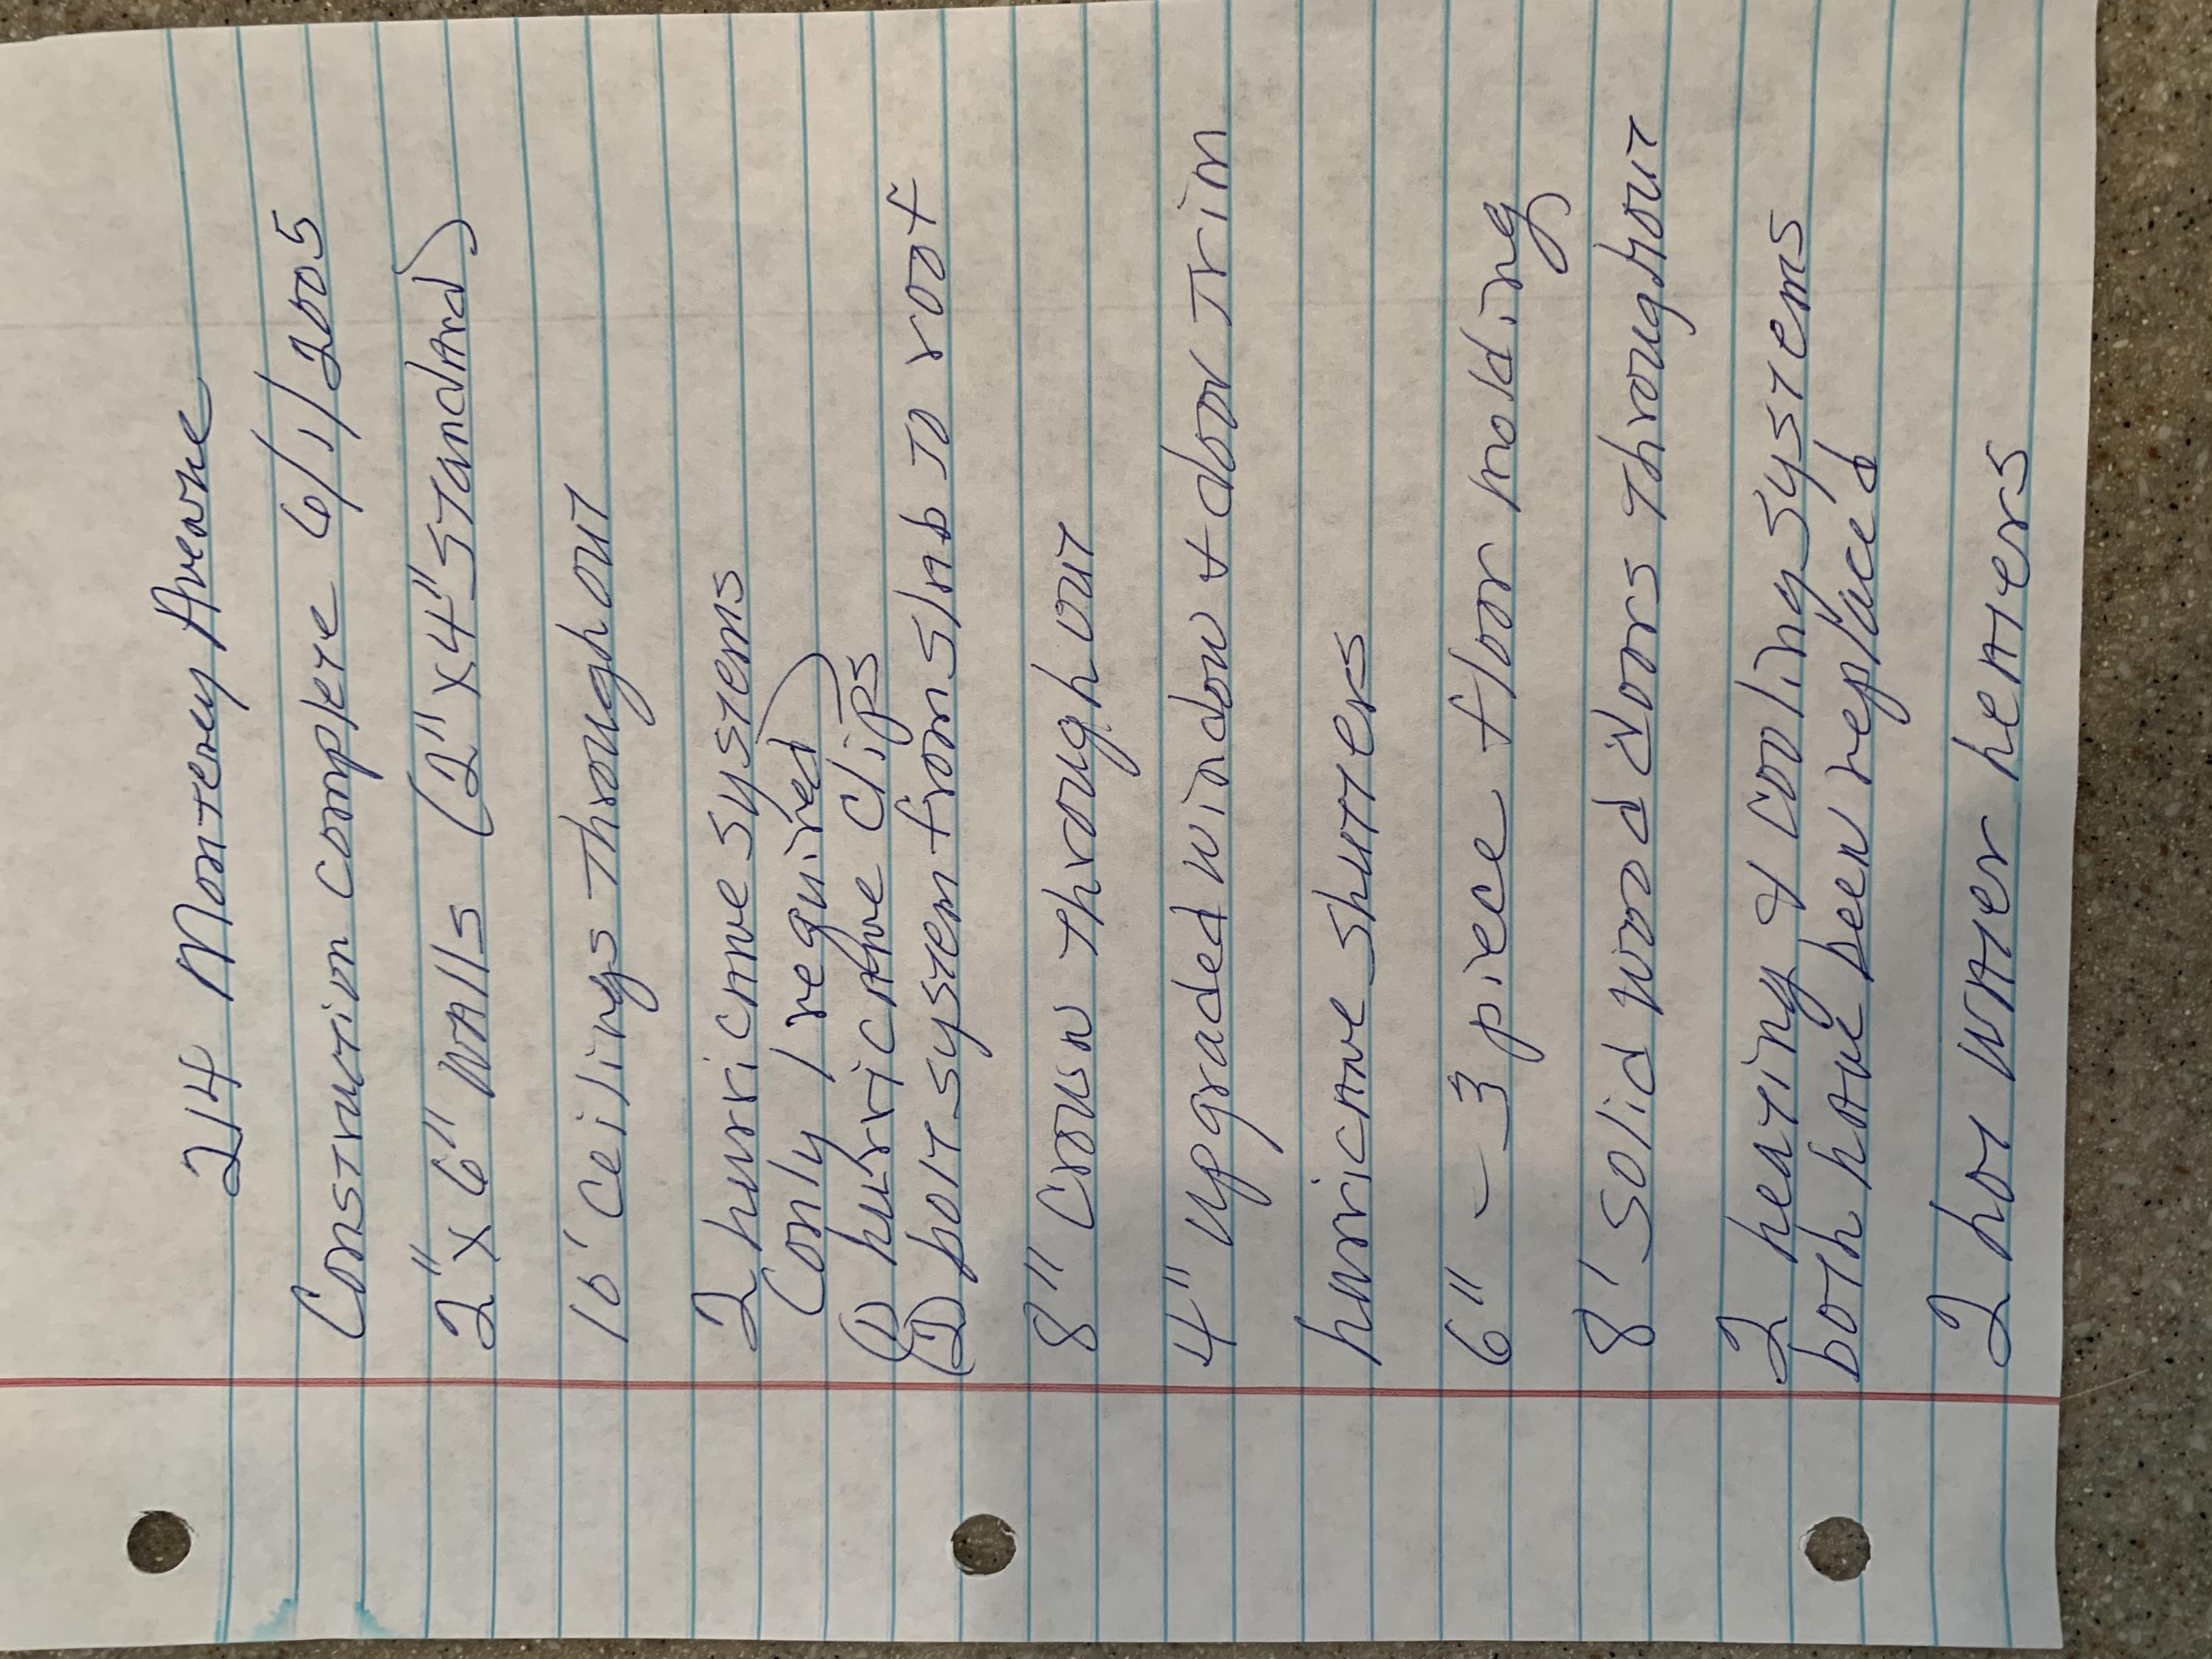 214 Monterey Avenue
Construction complete 6/1/2005
2"x 6" walls (2"x4" standard)
10' Ceilings Throughout
2 hurricane systems
(only 1 required)
(1) hurricane clips
(2) bolt system from slab to roof
8" Crown Throughout
4" upgraded window + door Trim
hurricane shutters
6" - 3 piece floor molding
8' solid wood doors Throughout
2 heating & cooling systems
both have been replaced
2 hot water heaters